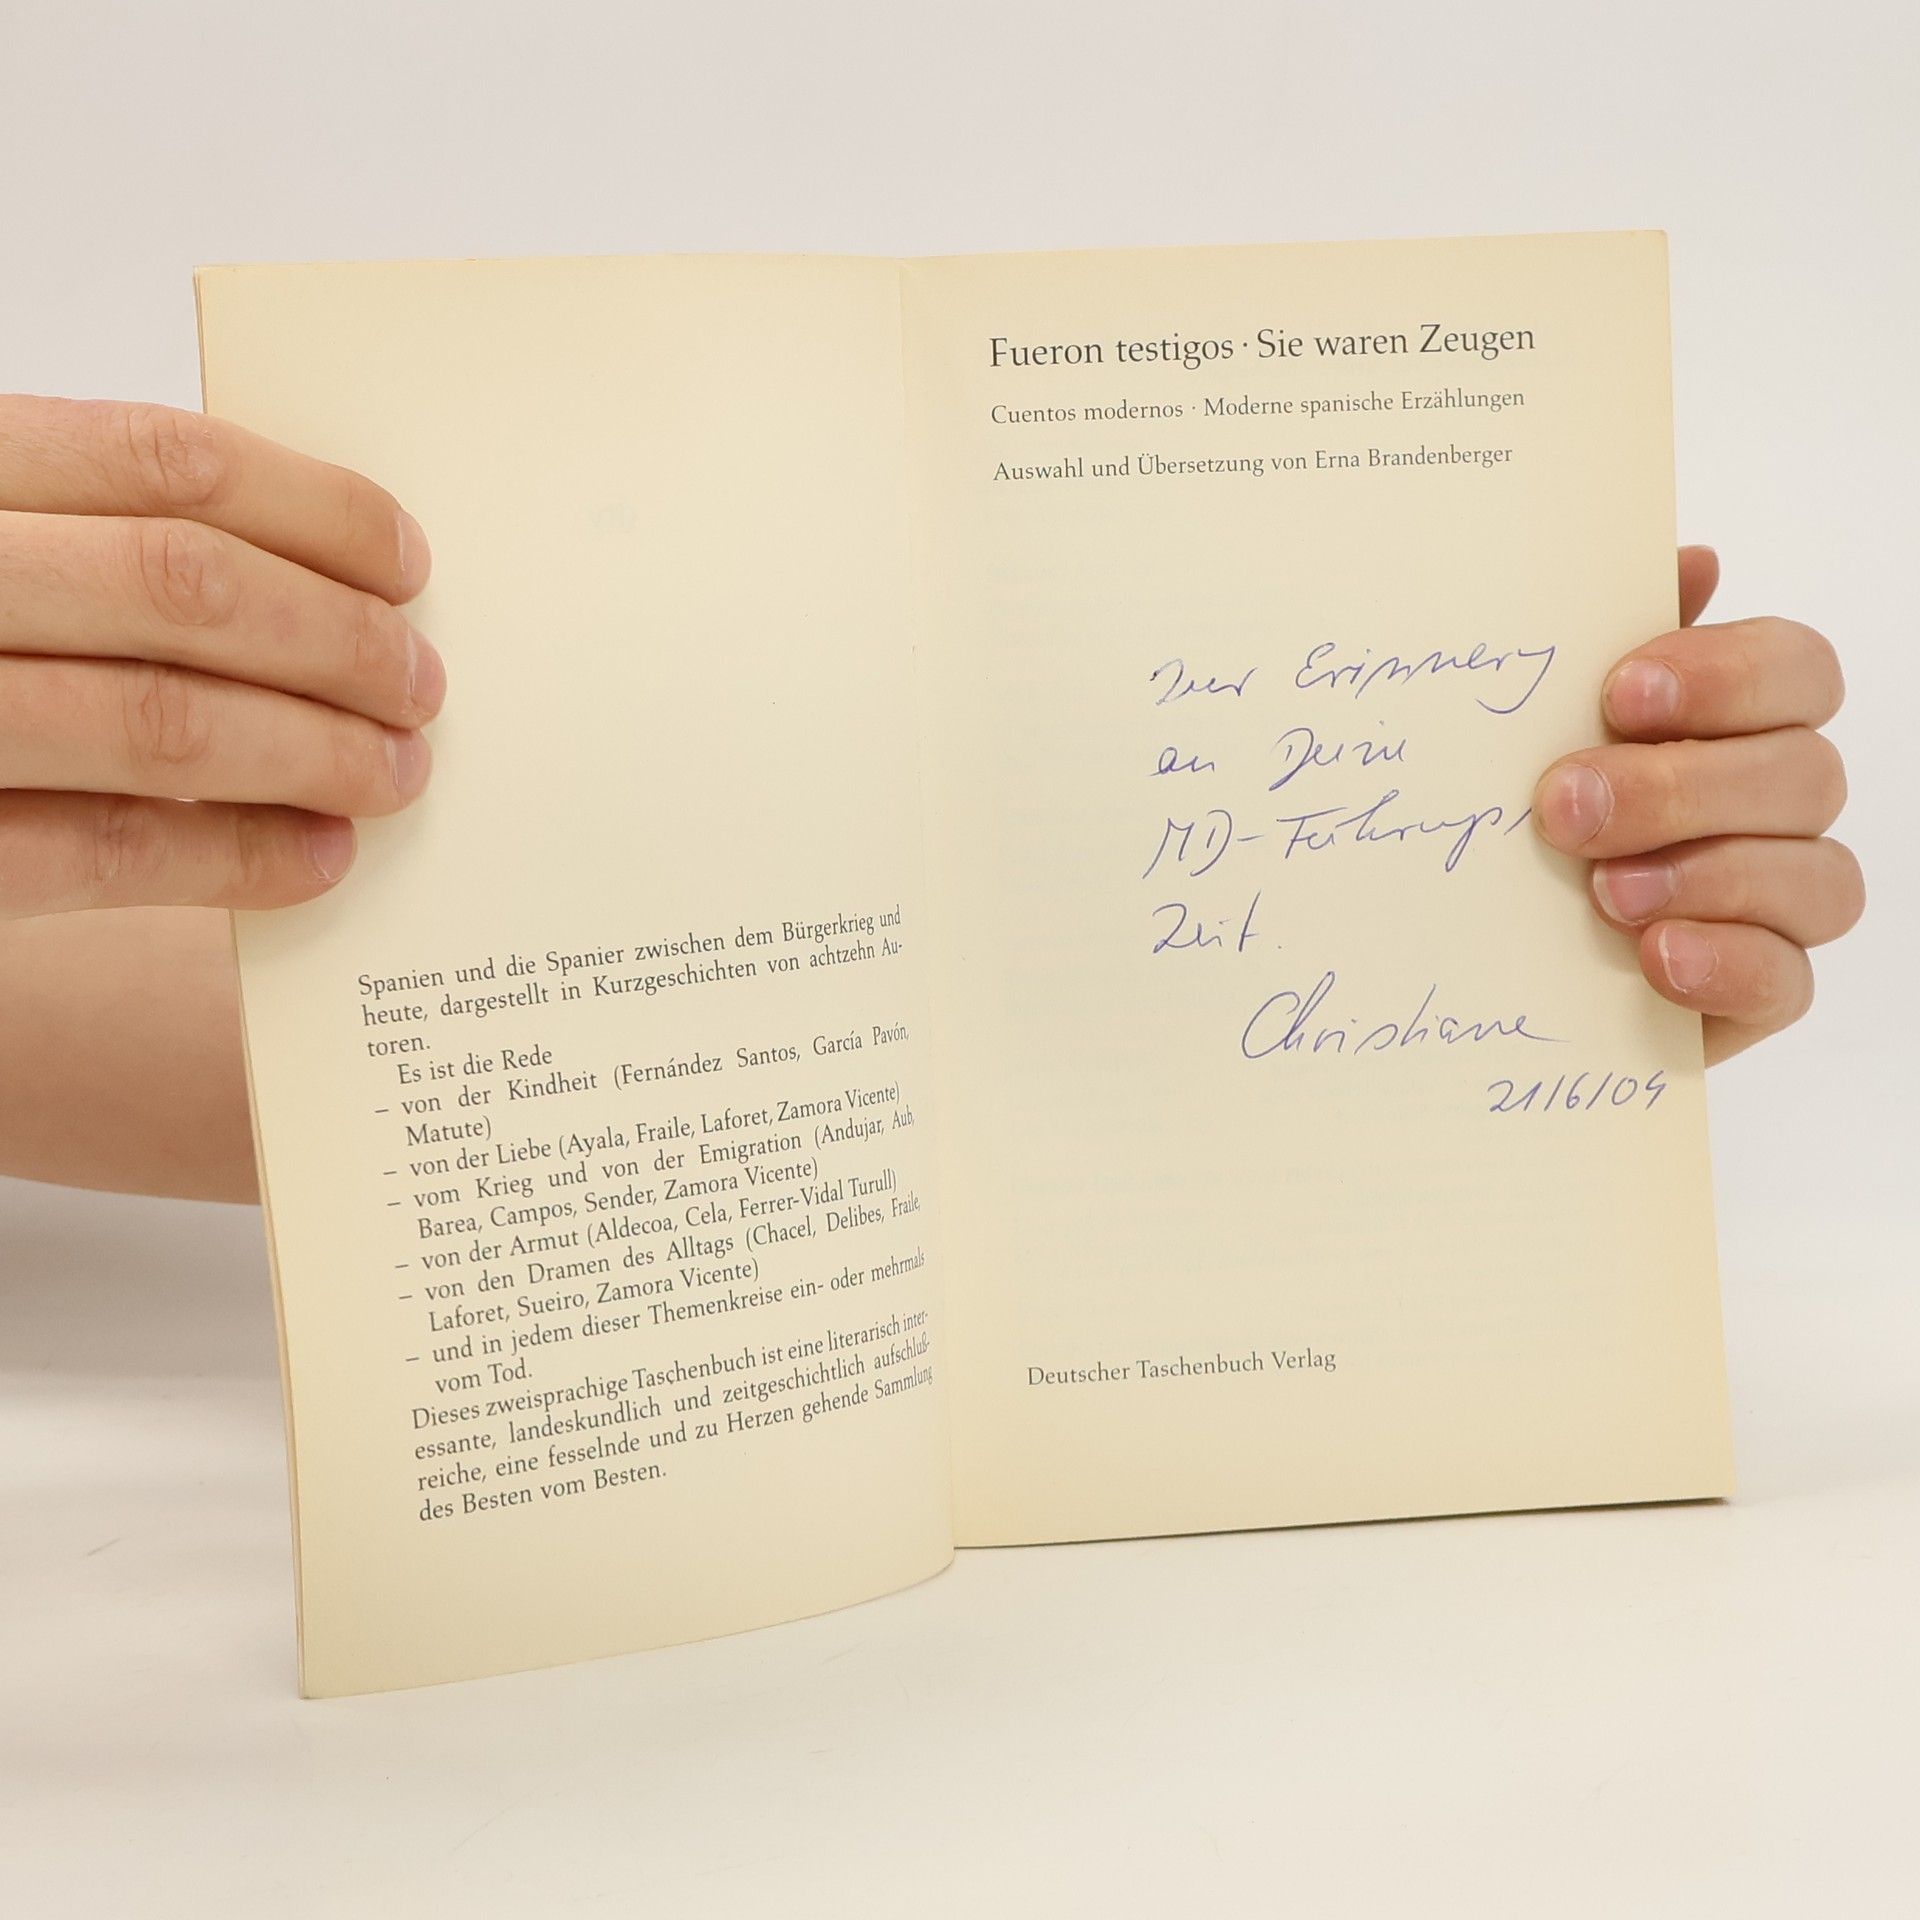 Spanien und die Spanier zwischen dem Bürgerkrieg und
heute, dargestellt in Kurzgeschichten von achtzehn Au-
toren.
Es ist die Rede
– von der Kindheit (Fernández Santos, García Pavón,
Matute)
– von der Liebe (Ayala, Fraile, Laforet, Zamora Vicente)
– vom Krieg und von der Emigration (Andujar, Aub,
Barea, Campos, Sender, Zamora Vicente)
– von der Armut (Aldecoa, Cela, Ferrer-Vidal Turull)
– von den Dramen des Alltags (Chacel, Delibes, Fraile,
Laforet, Sueiro, Zamora Vicente)
– und in jedem dieser Themenkreise ein- oder mehrmals
vom Tod.
Dieses zweisprachige Taschenbuch ist eine literarisch inter-
essante, landeskundlich und zeitgeschichtlich aufschluß-
reiche, eine fesselnde und zu Herzen gehende Sammlung
des Besten vom Besten.
Fueron testigos · Sie waren Zeugen
Cuentos modernos · Moderne spanische Erzählungen
Auswahl und Übersetzung von Erna Brandenberger
Zur Erinnerung
an Deine
MD-Führungs-
Zeit.
Christiane
21/6/04
Deutscher Taschenbuch Verlag